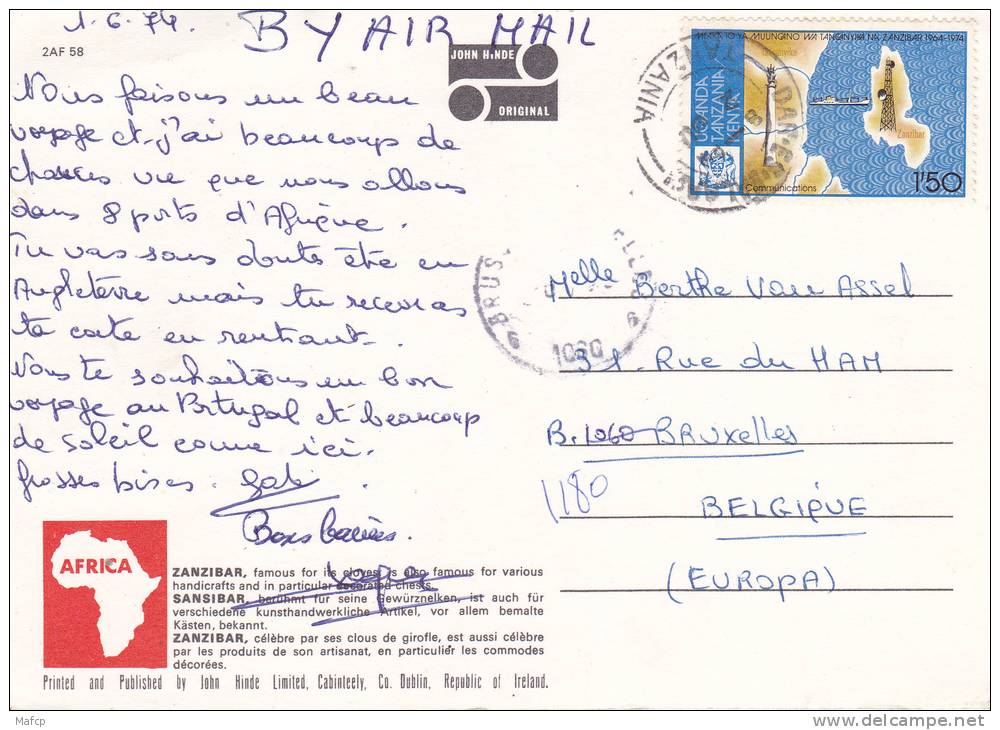 1.6.74. BY AIR MAIL
2AF 58
JOHN HINDE
ORIGINAL
Nous faisons un beau
voyage et j'ai beaucoup de
chances vu que nous allons
dans 8 ports d'Afrique.
Tu vas sans doute être en
Angleterre mais tu recevras
ta carte en rentrant.
Nous te souhaitons un bon
voyage au Portugal et beaucoup
de soleil comme ici.
Grosses bises. Gaby.
Bons baisers.
AFRICA
ZANZIBAR, famous for its cloves, is also famous for various
handicrafts and in particular decorated chests.
SANSIBAR, berühmt für seine Gewürznelken, ist auch für
verschiedene kunsthandwerkliche Artikel, vor allem bemalte
Kästen, bekannt.
ZANZIBAR, célèbre par ses clous de girofle, est aussi célèbre
par les produits de son artisanat, en particulier les commodes
décorées.
Printed and Published by John Hinde Limited, Cabinteely, Co. Dublin, Republic of Ireland.
MUUNGANO WA TANGANYIKA NA ZANZIBAR 1964-1974
UGANDA
TANZANIA
KENYA
Zanzibar
Communications
1'50
TANZANIA
BRUS
6 1060 6
Melle Berthe Van Assel
31. Rue du HAM
B. 1060 BRUXelles
1180
BELGIQUE
(EUROPA)
Mafcp
delcampe.net